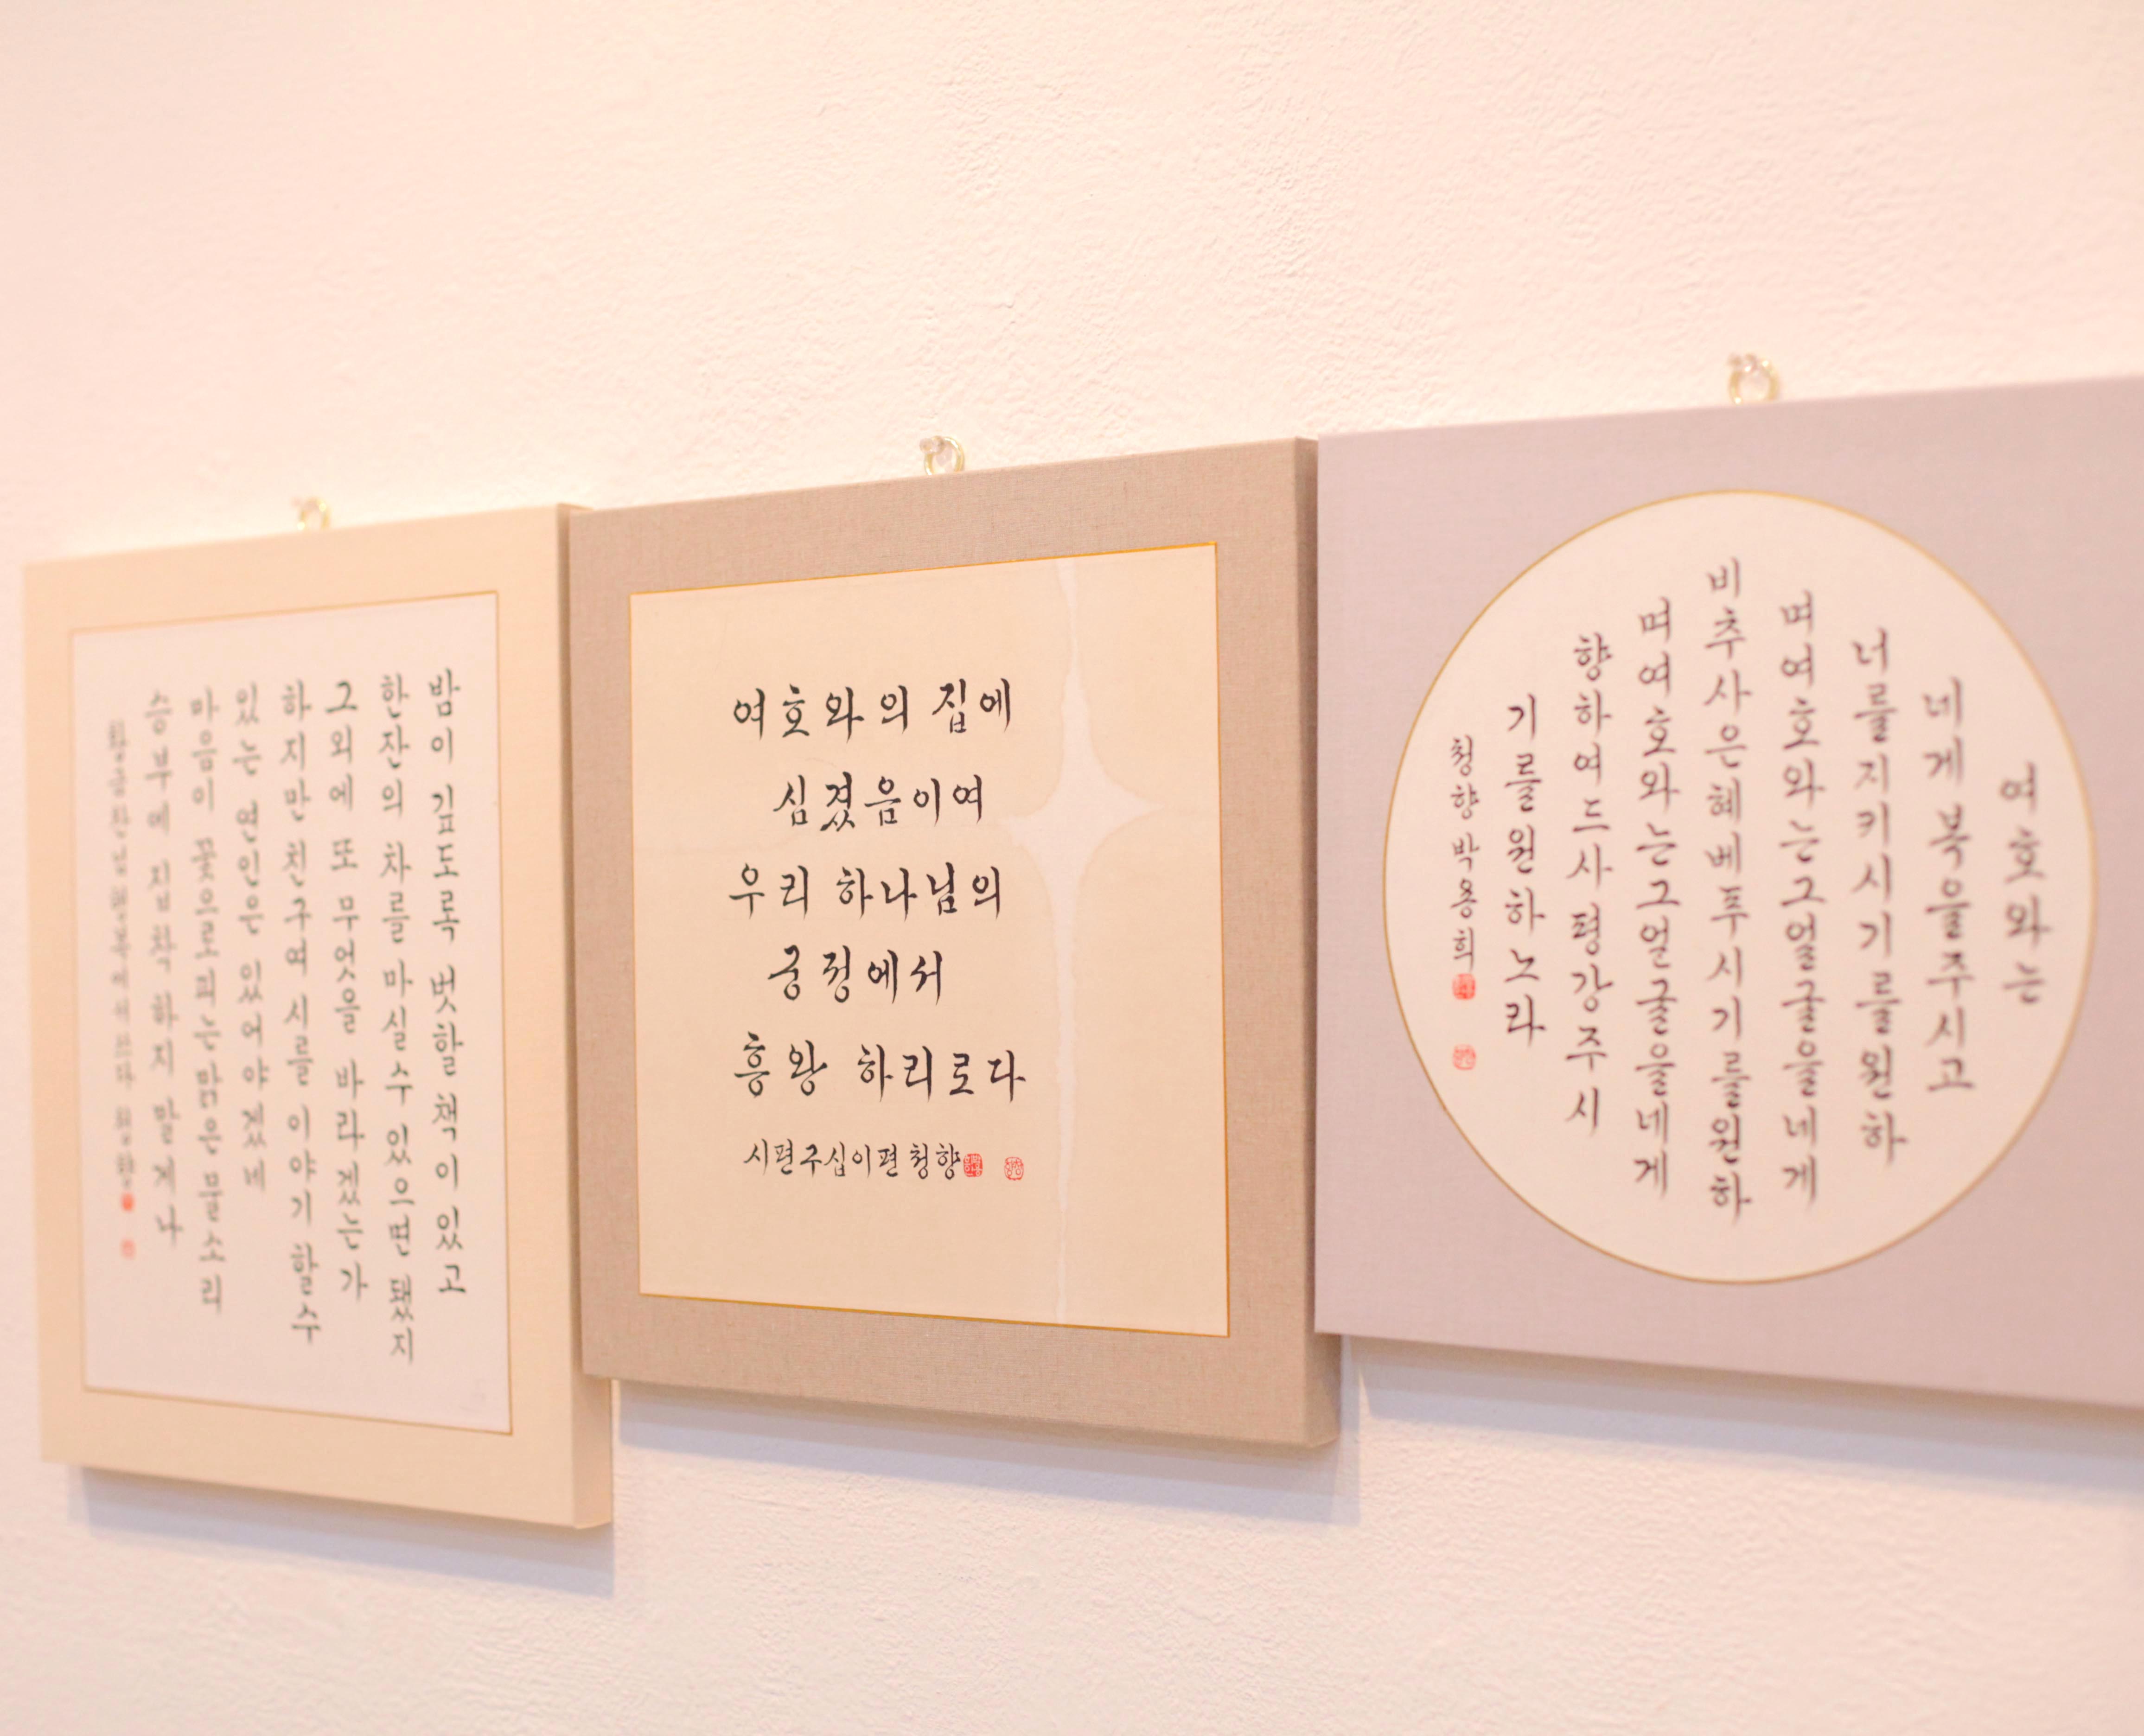 밤이 깊도록 벗할 책이 있고
한잔의 차를 마실수 있으면 됐지
그외에 또 무엇을 바라겠는가
하지만 친구여 시를 이야기 할수
있는 연인은 있어야겠네
마음이 꽃으로피는 맑은 물소리
승부에 집착 하지 말게나
여호와의 집에
심겼음이여
우리 하나님의
궁정에서
흥왕 하리로다
시편구십이편 청향
여호와는
네게복을주시고
너를지키시기를원하
며여호와는그얼굴을네게
비추사은혜베푸시기를원하
며여호와는그얼굴을네게
향하여드사평강주시
기를원하노라
청향박용희